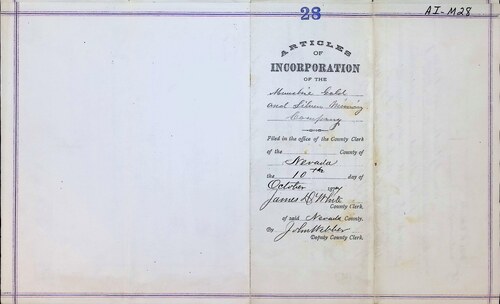 28
AI-M28
ARTICLES
OF
INCORPORATION
OF THE
Gold
and Silver Mining
Company
Filed in the office of the County Clerk
of the County of
Nevada
the 10th day of
October 187
James D. White
County Clerk.
of said Nevada County.
By John Webber
Deputy County Clerk.